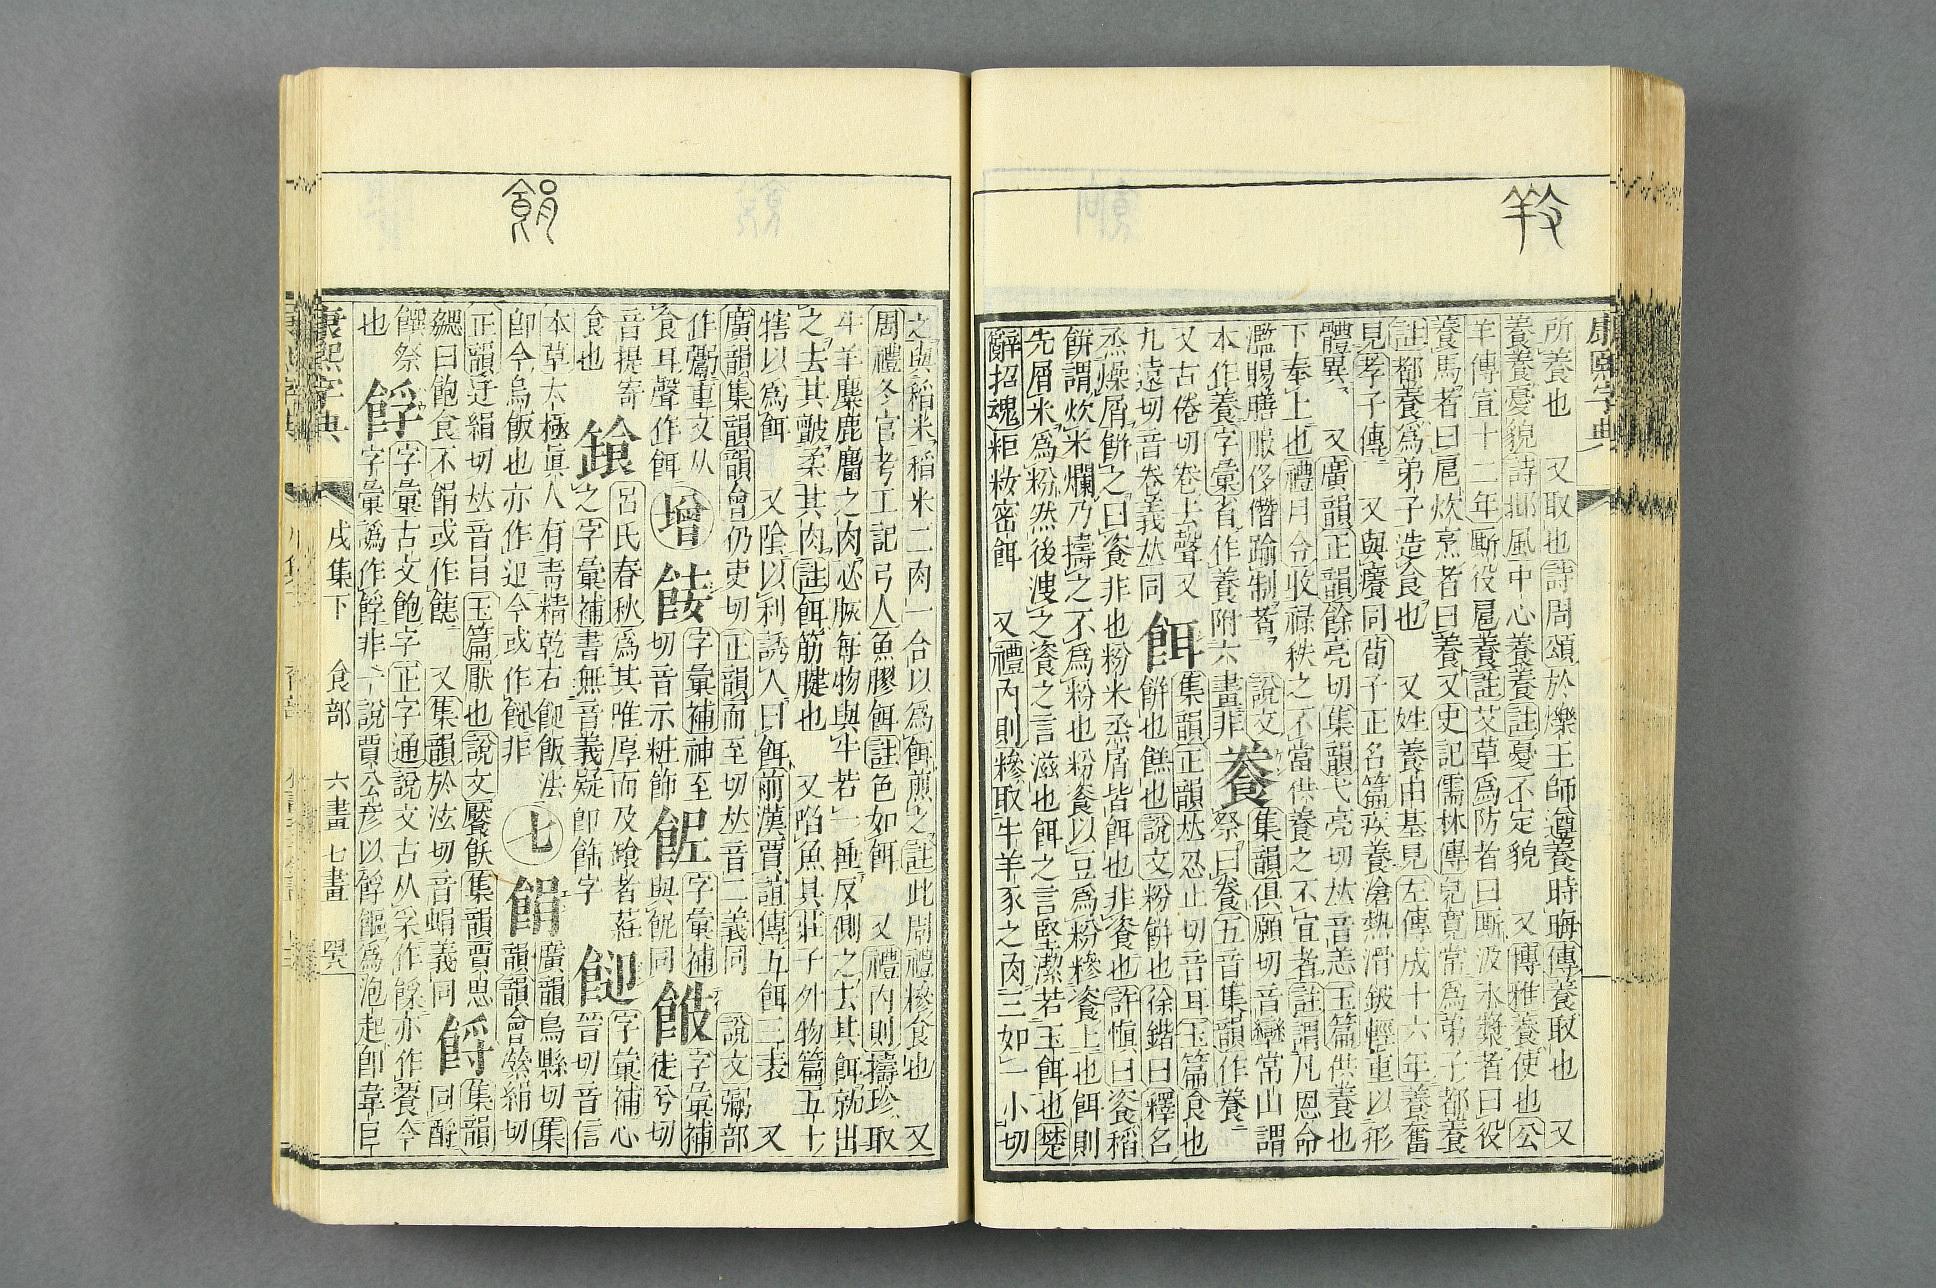 所養也　又取也詩周頌於爍王師遵養時晦傳養取也　又
養養憂貌詩邶風中心養養註憂不定貌　又博雅養使也公
羊傳宣十二年廝役扈養註艾草爲防者曰廝汲水漿者曰役
養馬者曰扈炊烹者曰養又史記儒林傳兒寬常爲弟子都養
註都養爲弟子造食也　又姓養由基見左傳成十六年養奮
見孝子傳　又與癢同荀子正名篇疾養凔熱滑鈹輕重以形
體異　又廣韻正韻餘亮切集韻弋亮切𠀤音恙玉篇供養也
下奉上也禮月令收祿秩之不當供養之不宜者註謂凡恩命
濫賜膳服侈僭踰制者　說文
本作養字彙省作養附六畫非
餋
集韻俱願切音𢍏常山謂
祭曰餋五音集韻作養
又古倦切卷去聲又
九遠切音卷義𠀤同
餌
集韻正韻𠀤忍止切音耳玉篇食也
餠也餻也說文粉餠也徐鍇曰釋名
烝燥屑餠之曰餈非也粉米烝屑皆餌也非餈也許愼曰餈稻
餠謂炊米爛乃擣之不爲粉也粉餈以豆爲粉糝餈上也餌則
先屑米爲粉然後溲之餈之言滋也餌之言堅潔若玉餌也楚
辭招魂粔籹密餌　又禮內則糝取牛羊豕之肉三如一小切
之與稻米稻米二肉一合以爲餌煎之註此周禮糝食也　又
周禮冬官考工記弓人魚膠餌註色如餌　又禮內則擣珍取
牛羊麋鹿麕之肉必脄每物與牛若一捶反側之去其餌孰出
之去其皽柔其肉註餌筋腱也　又陷魚具莊子外物篇五十
犗以爲餌　又陰以利誘人曰餌前漢賈誼傳五餌三表　又
廣韻集韻韻會仍吏切正韻而至切𠀤音二義同　說文䰞部
作䰞重文从
食耳聲作餌
增
䬵
字彙補神至
切音示粧飾
字彙補
與䬾同
字彙補
徒兮切
音提寄
食也
呂氏春秋爲其唯厚而及飡者莊
之字彙補書無音義疑卽飾字
字彙補心
晉切音信
本草太極眞人有靑精乾石䭀飯法
卽今烏飯也亦作迎今或作䭀非
七
䬼
廣韻烏縣切集
韻韻會縈絹切
正韻迂絹切𠀤音䀏玉篇厭也說文饜飫集韻賈思
勰曰飽食不䬼或作䭘　又集韻於泫切音蜎義同
集韻
同酹
餟祭
也
字彙古文飽字正字通說文古从采作䬹亦作養今
字彙譌作䬹非一說賈公彥以䬹䬺爲泡起卽韋巨
康熙字典
戌集下
食部
六畫七畫
康熙字典